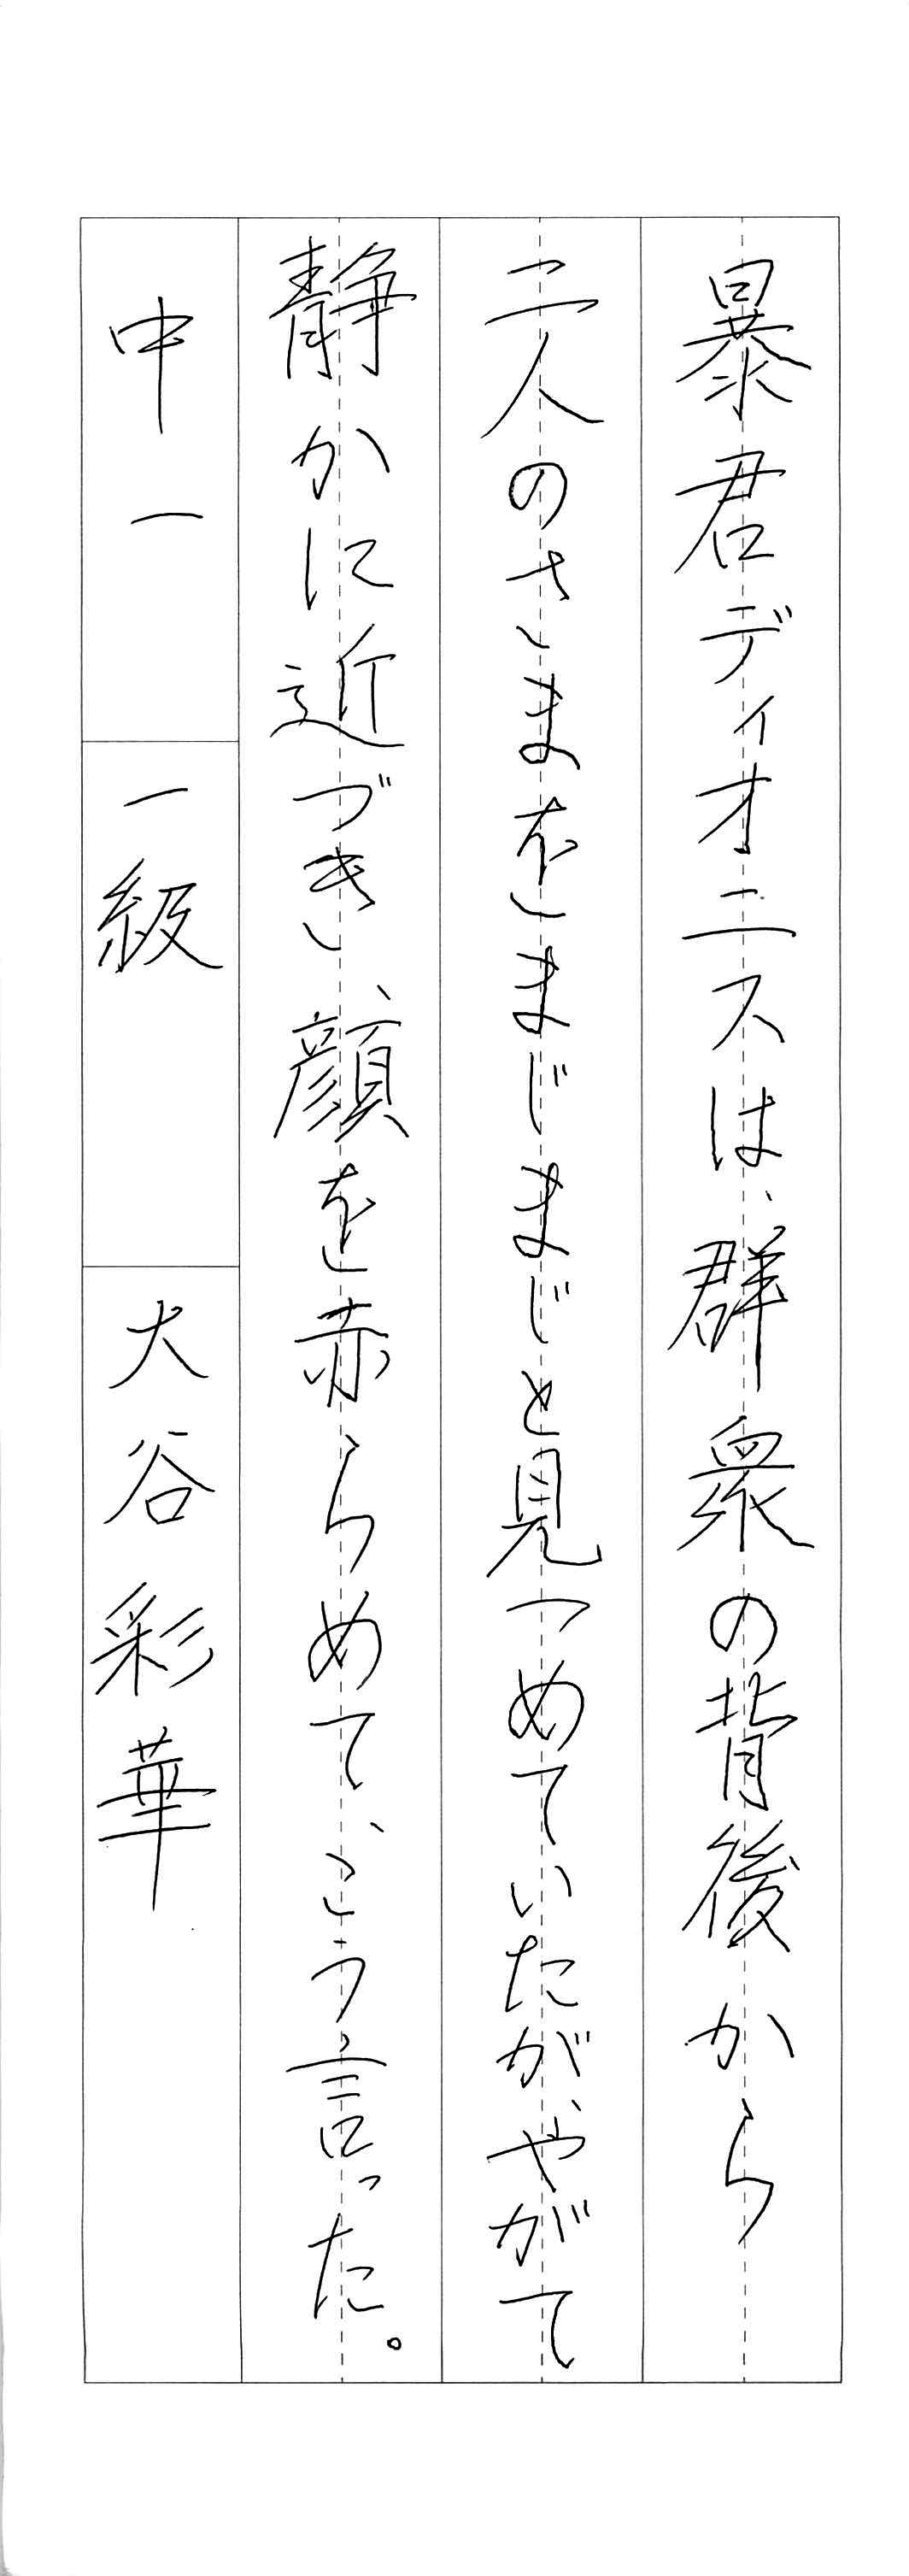 暴君ディオニスは、群衆の背後から
二人のさまをまじまじと見つめていたが、やがて
静かに近づき、顔を赤らめて、こう言った。
中一
一級
大谷彩華